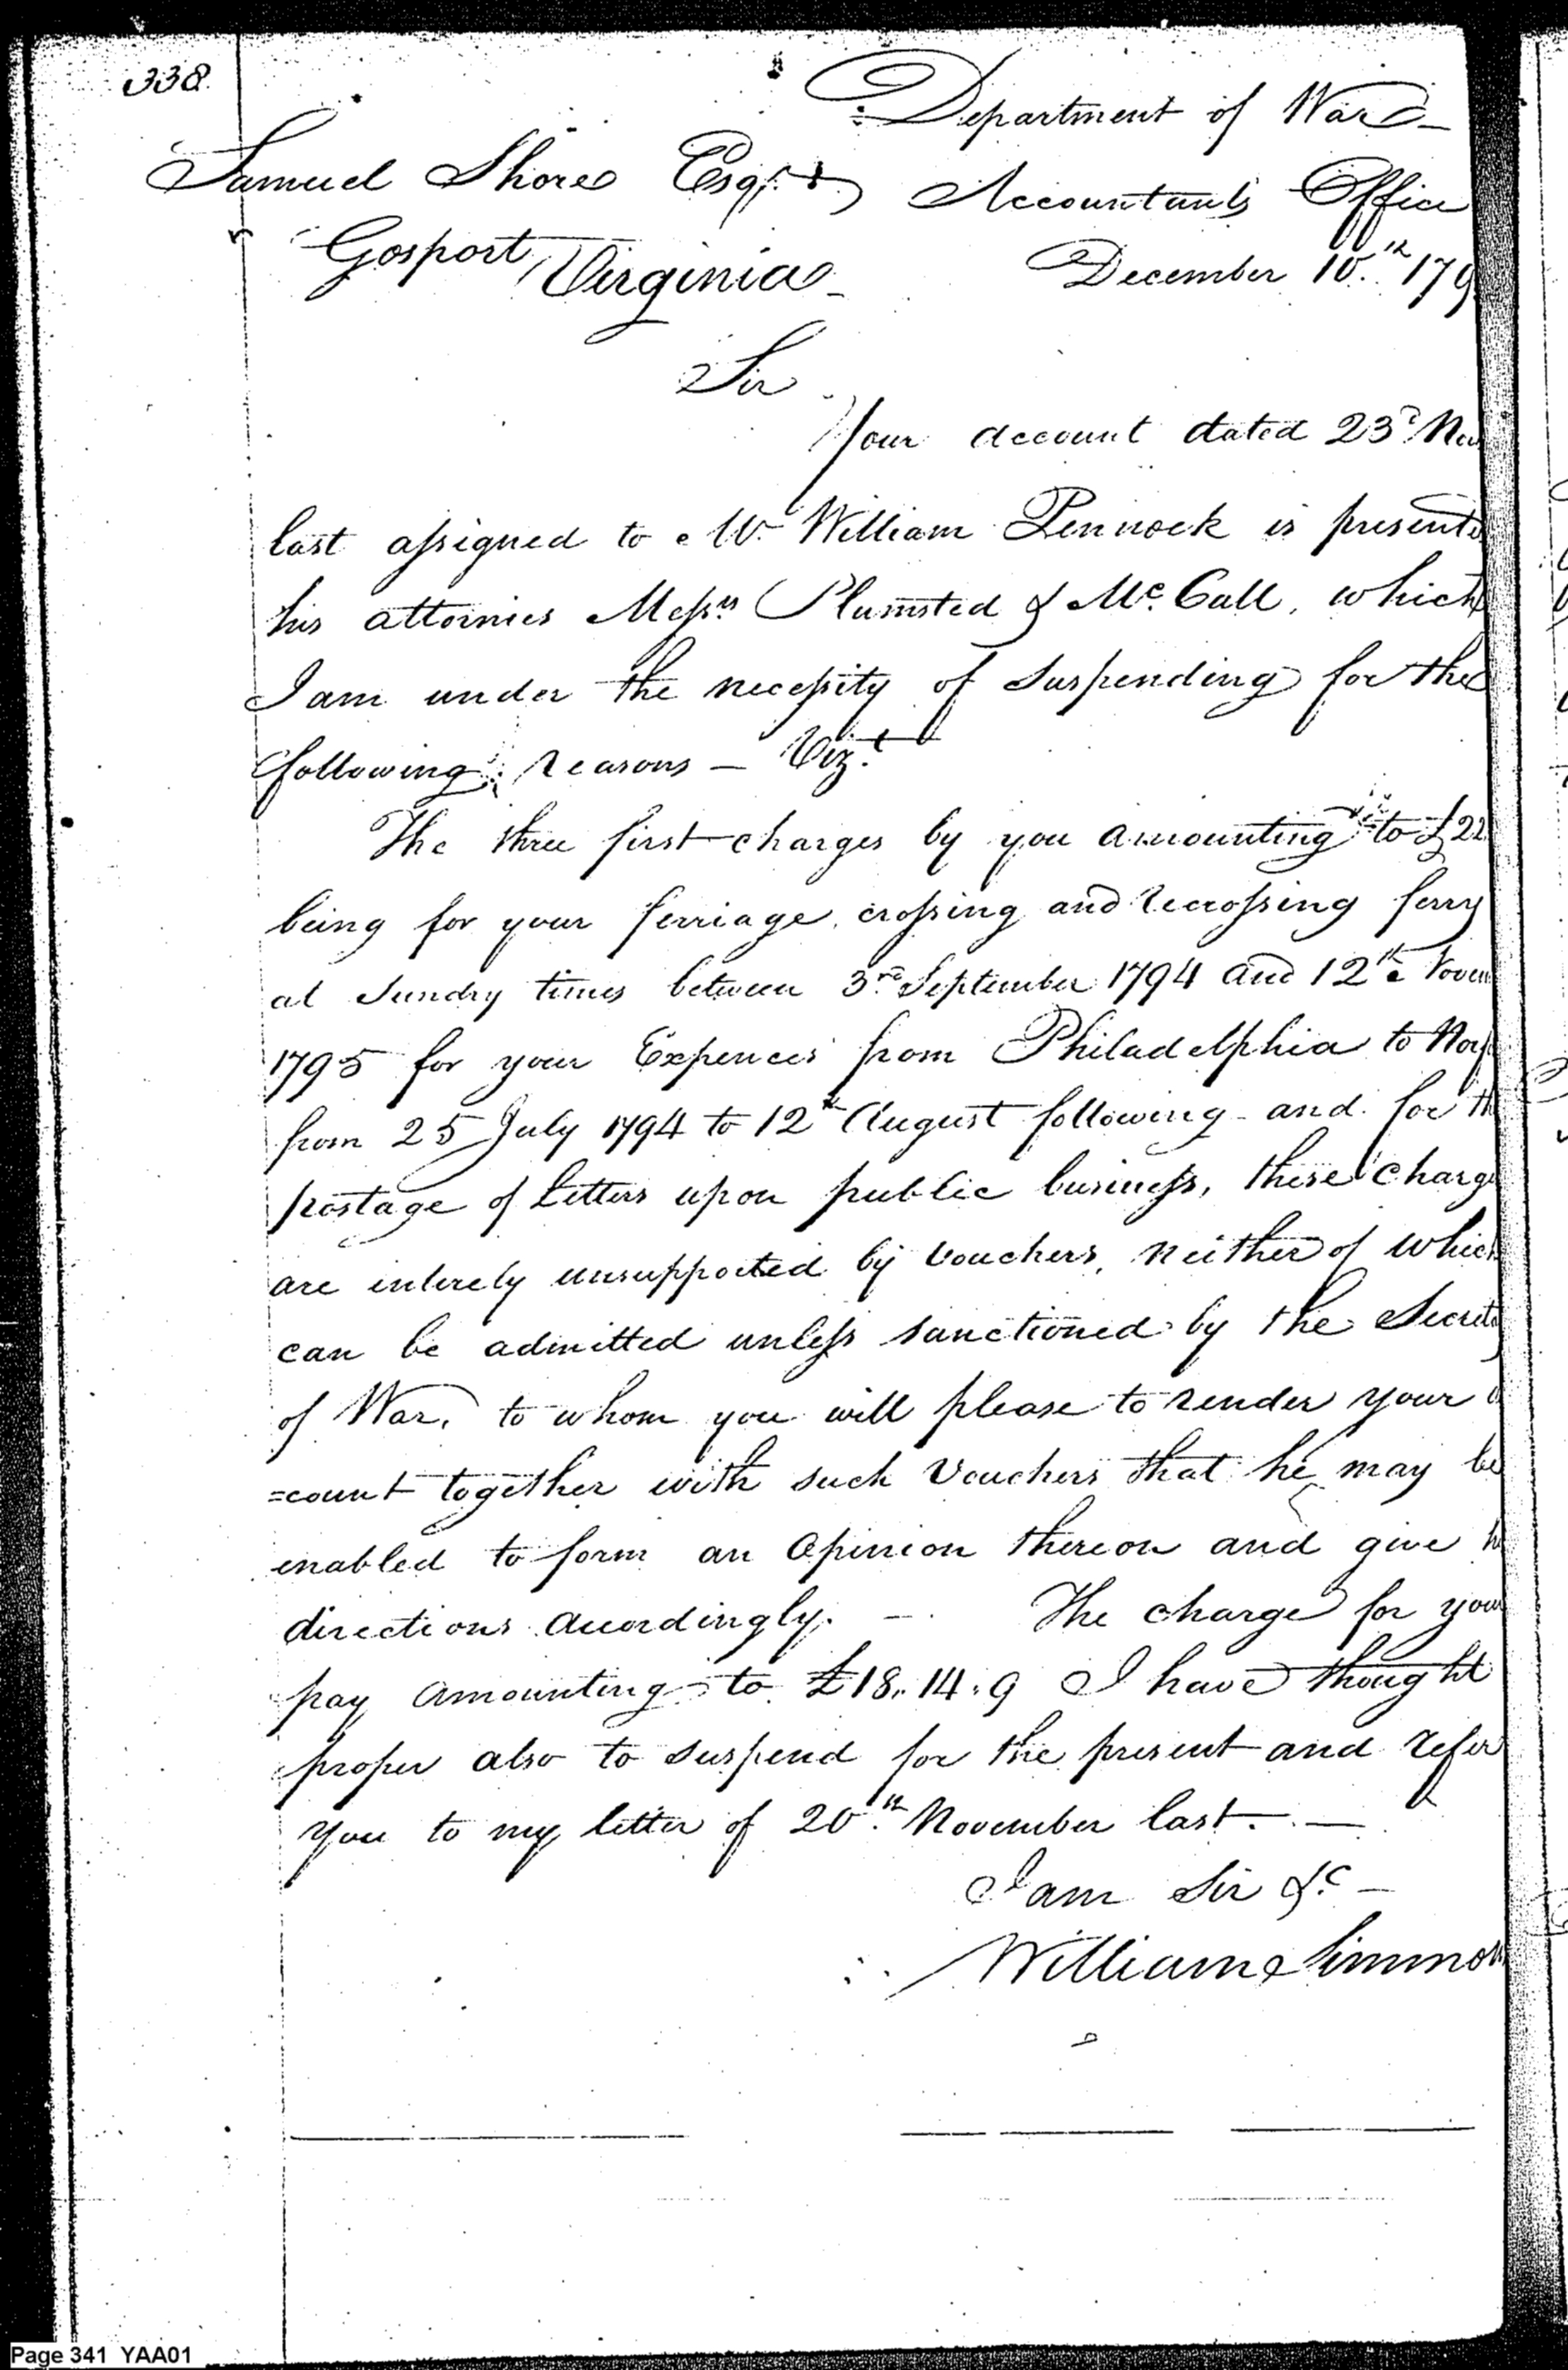 338.
Department of War
Samuel Shore Esqr.
Accountants Office
Gosport, Virginia
December 10.th 179
Sir
Your account dated 23d. Nov
last assigned to Mr. William Pennock is presente
his attornies Messrs. Plumsted & Mc.Call, which
I am under the necessity of suspending for the
following reasons — Vizt.
The three first charges by you amounting to £22
being for your ferriage, crossing and recrossing ferry
at Sundry times between 3rd. September 1794 and 12th Novem
1795 for your Expences from Philadelphia to Norf
from 25 July 1794 to 12th August following and for th
postage of Letters upon public business, these charge
are intirely unsupported by vouchers, neither of which
can be admitted unless sanctioned by the Secreta
of War, to whom you will please to render your a
=count together with such Vouchers that he may be
enabled to form an Opinion thereon and give h
directions accordingly. — The charge for your
pay amounting to £18.14.9 I have thought
proper also to suspend for the present and refer
you to my letter of 20.th November last. —
I am Sir &c —
William Simmon
Page 341 YAA01